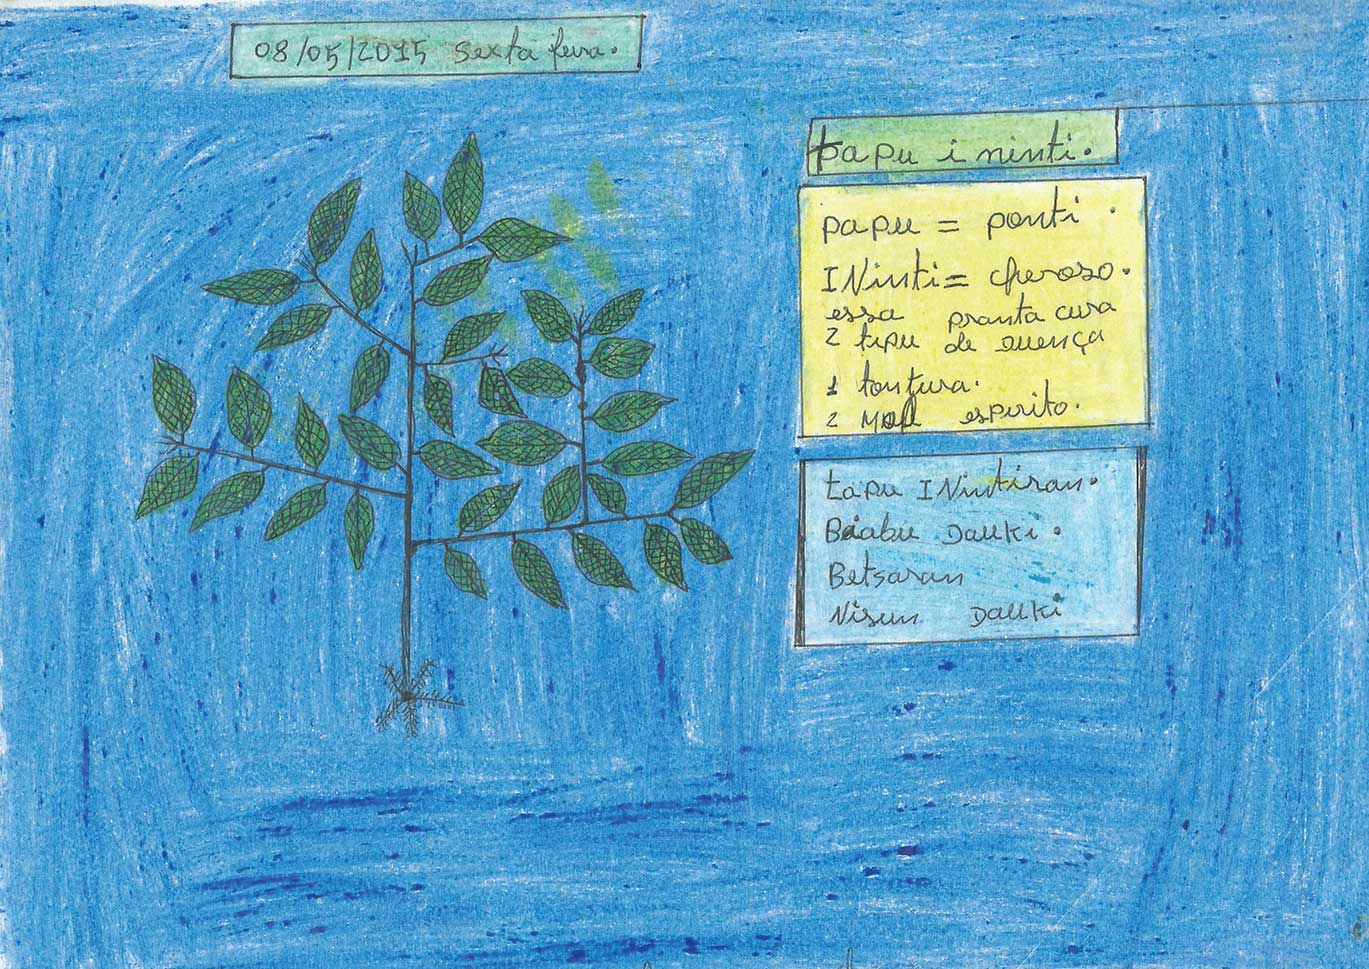 08/05/2015 sexta feira.
tapu i ninti.
papu = ponti.
ININti = cheroso.
essa pranta cura
2 tipu de duença
1 tontura.
2 Mal espirito.
tapu ININtiran.
Biabu Dauki.
Betsaran
Nisun Dauki